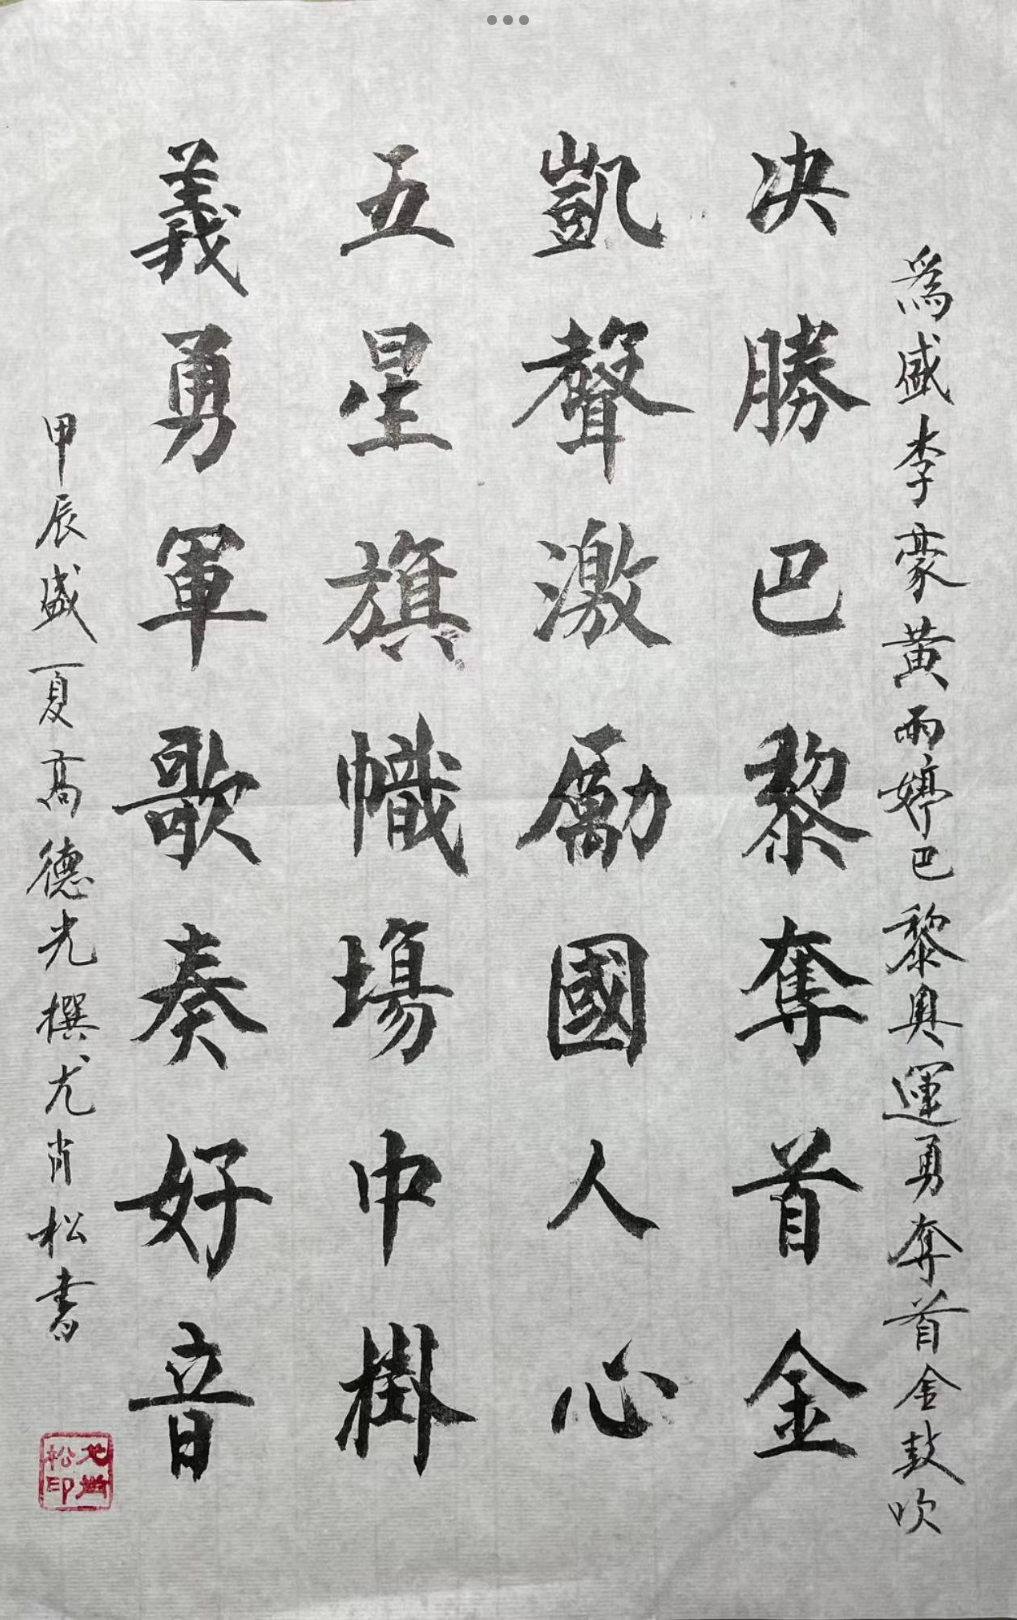 為盛李豪黄雨婷巴黎奥運勇奪首金鼓吹
决勝巴黎奪首金
凱聲激勵國人心
五星旗幟場中掛
義勇軍歌奏好音
甲辰盛夏高德光撰尤肖松書
松印